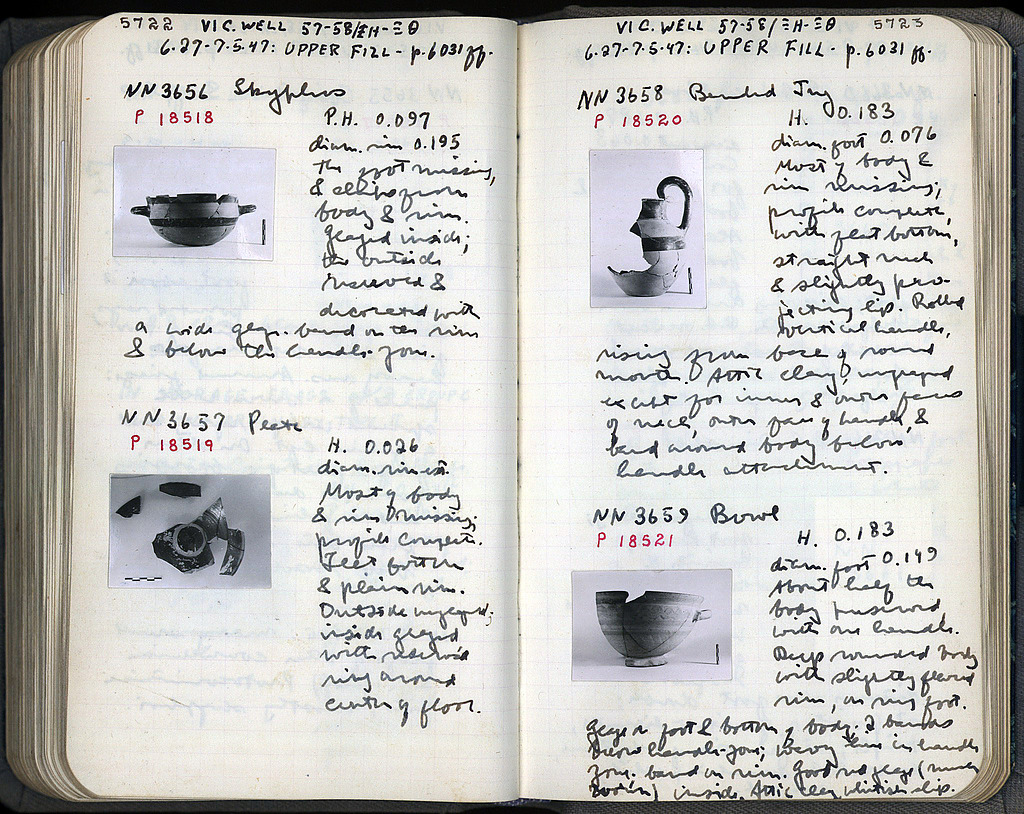 5722 VIC. WELL 57-58/ΞH-ΞΘ
6.27-7.5.47: UPPER FILL - p. 6031 ff.
NN 3656 Skyphos
P 18518
P.H. 0.097
diam. rim 0.195
The foot missing,
& chips from
body & rim.
Glazed inside;
the outside
reserved &
decorated with
a wide glaze band on the rim
& below the handle-zone.
NN 3657 Plate
P 18519
H. 0.026
diam. rim est.
Most of body
& rim missing;
profile complete.
Flat bottom
& plain rim.
Outside unglazed;
inside glazed
with reserved
ring around
center of floor.
VIC. WELL 57-58/ΞH-ΞΘ 5723
6.27-7.5.47: UPPER FILL - p. 6031 ff.
NN 3658 Banded Jug
P 18520
H. 0.183
diam. foot 0.076
Most of body &
rim missing;
profile complete,
with flat bottom,
straight neck
& slightly pro-
jecting lip. Rolled
vertical handle,
rising from base of round
mouth. Attic clay, unglazed
except for inner & outer faces
of neck, outer face of handle, &
band around body below
handle attachment.
NN 3659 Bowl
P 18521
H. 0.183
diam. foot 0.149
About half the
body preserved,
with one handle.
Deep rounded body
with slightly flared
rim, on ring foot.
Glaze on foot & bottom of body; 2 bands
below handle-zone; wavy line in handle
zone. band on rim. Good red glaze (much
worn) inside. Attic clay, whitish slip.